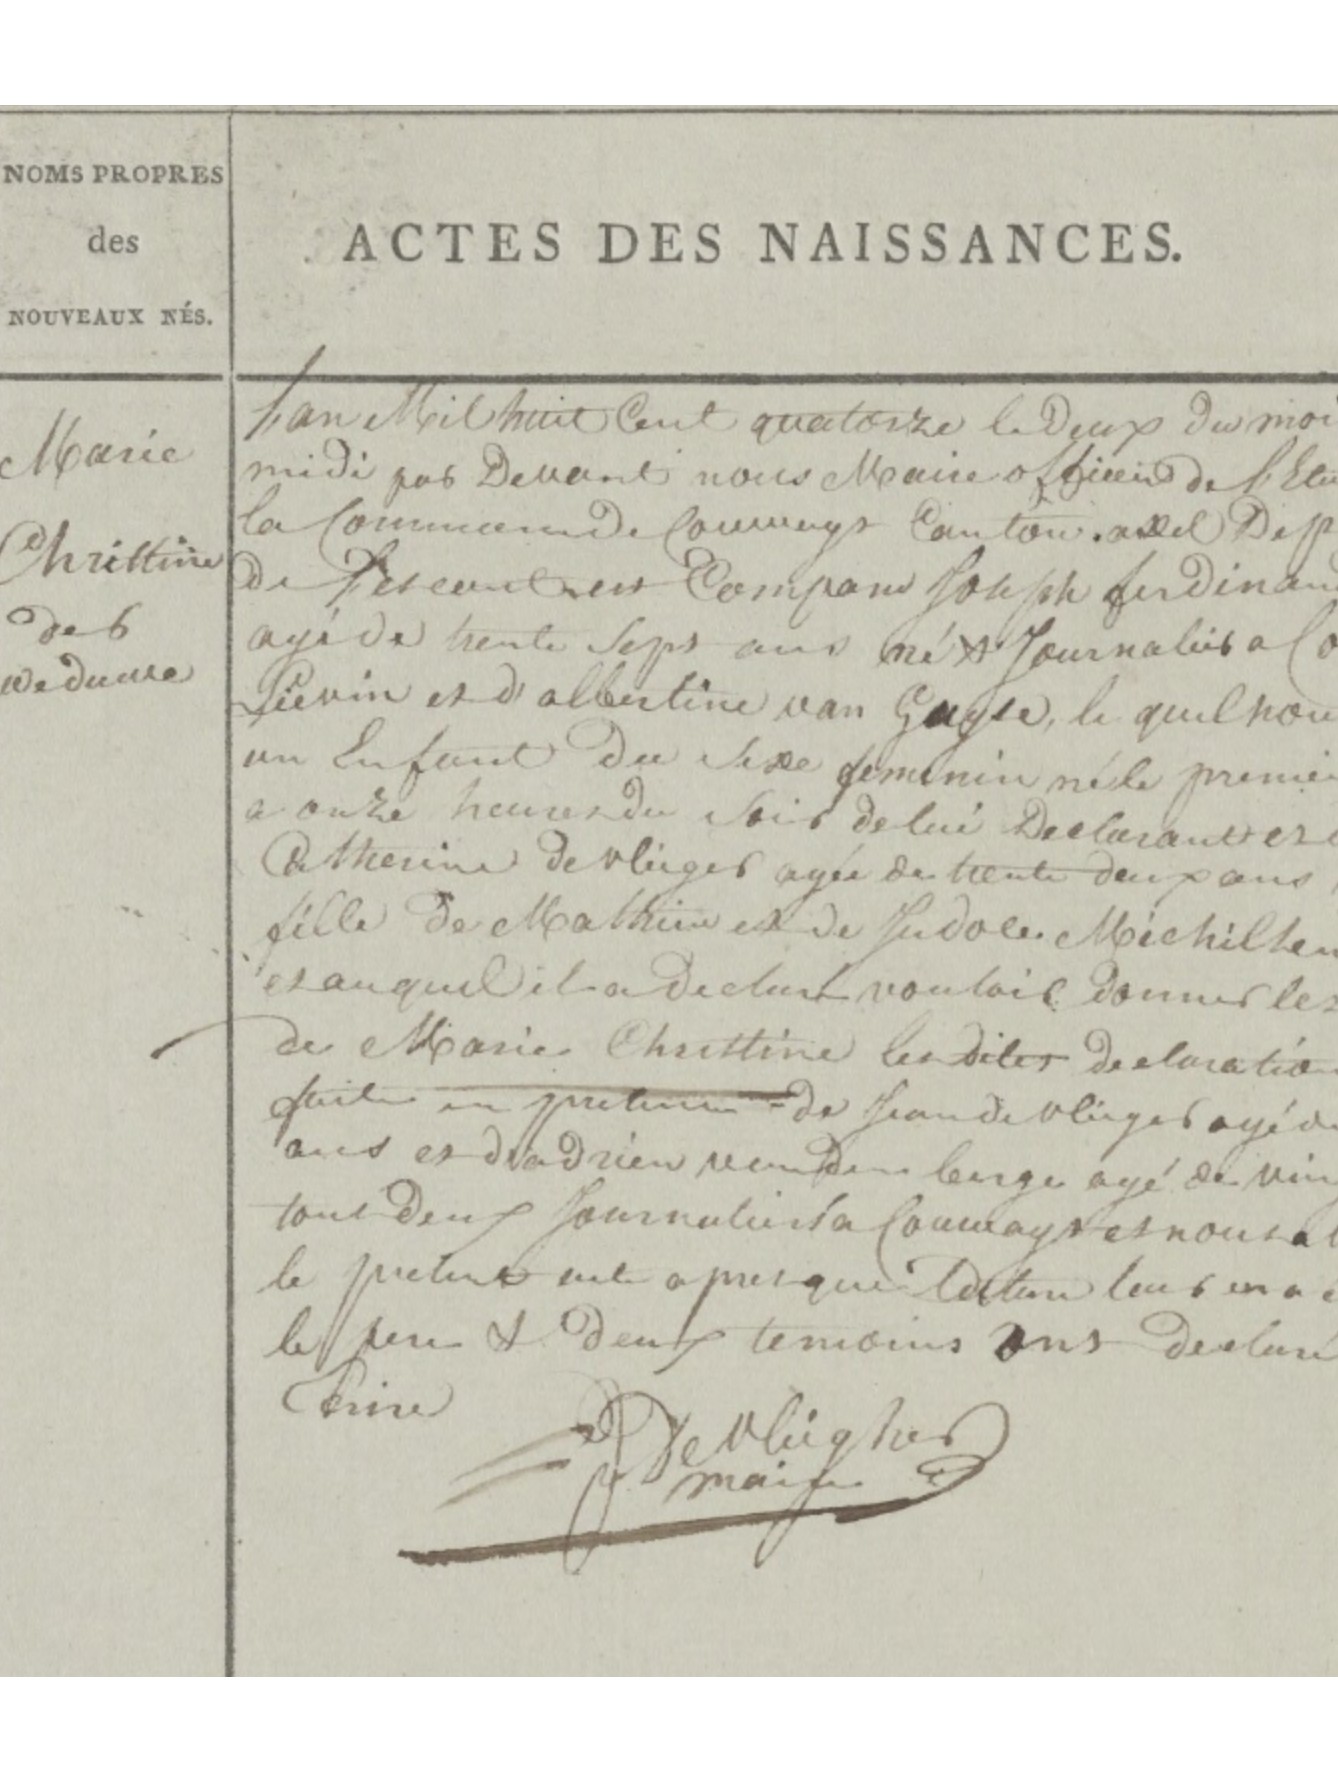 NOMS PROPRES
des
NOUVEAUX NÉS.
ACTES DES NAISSANCES.
Marie
Christine
der
weduwe
L'an Mil huit Cent quatorze le Deux du moi
midi par Devant nous Maire officier de l'Eta
la Commune de Couways Canton axel Dep
de l'escaut est Comparu Joseph ferdinan
agé de trente sept ans né & Journalier a Co
Lievin et d'albertine van Guyse, le quel nou
un Enfant du sexe feminin né le premier
a onze heures du soir de lui Declarant et
Catherine de vlieger agée de trente deux ans
fille de Mathieu et de Judoce Michilsen
et auquel il a declaré vouloir donner les
de Marie Christine les dites declaration
faite en presence de Jean de vlieger agé de
ans et d'adrien van den berge agé de vin
tout deux Journaliers a Couwayt et nous a
le present acte apres que lecture leur en a
le pere & deux temoins ont declaré
Ecrire
De vliegher
maire